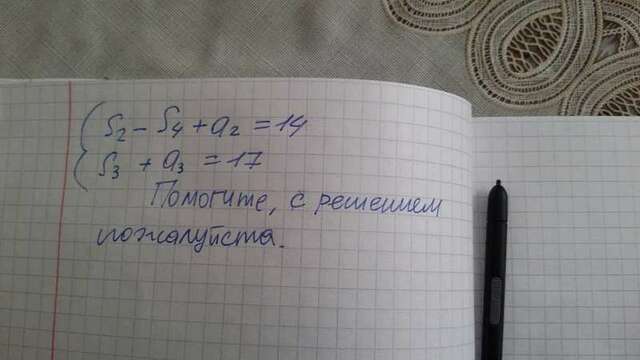 S₂ - S₄ + a₂ = 14
S₃ + a₃ = 17
Помогите, с решением
пожалуйста.